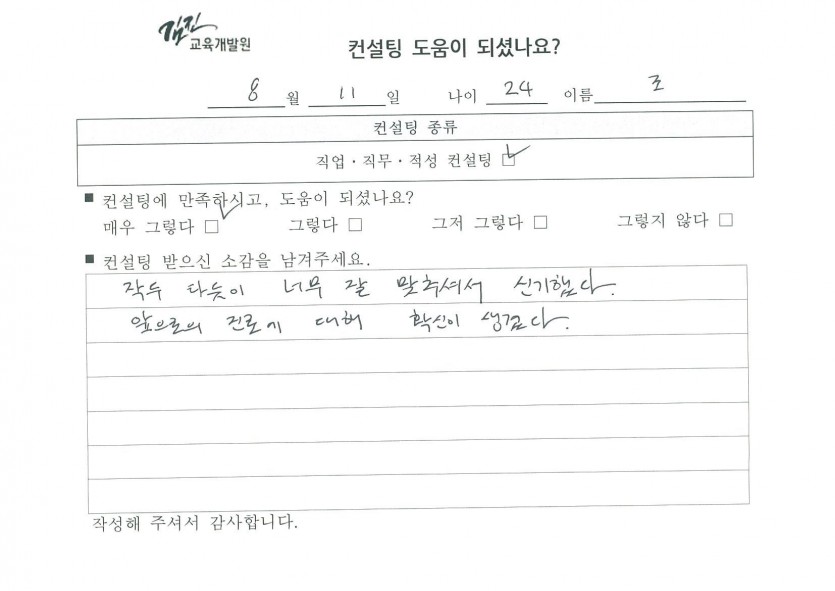 김진
교육개발원
컨설팅 도움이 되셨나요?
8 월 11 일 나이 24 이름 조
컨설팅 종류
직업·직무·적성 컨설팅 ☑
■ 컨설팅에 만족하시고, 도움이 되셨나요?
매우 그렇다 ☑ 그렇다 □ 그저 그렇다 □ 그렇지 않다 □
■ 컨설팅 받으신 소감을 남겨주세요.
작두 타듯이 너무 잘 맞추셔서 신기했다.
앞으로의 진로에 대해 확신이 생겼다.
작성해 주셔서 감사합니다.